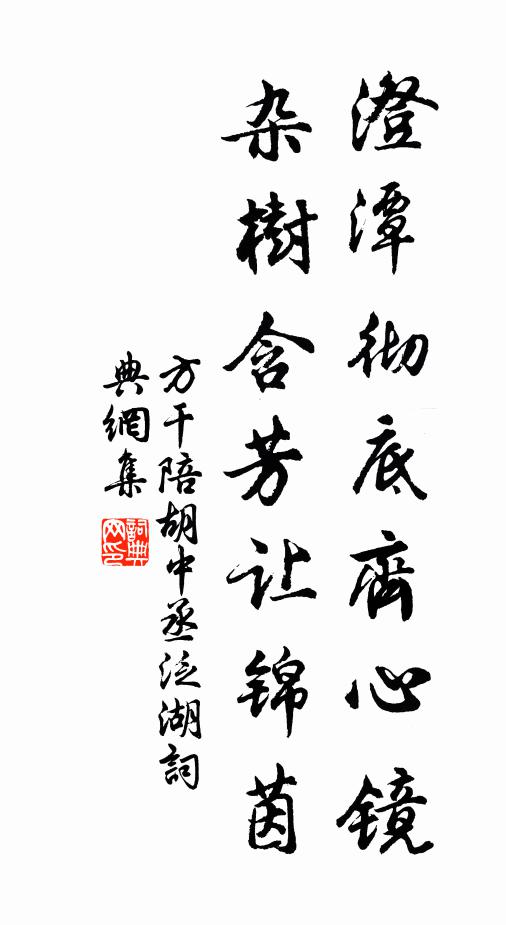 澄潭彻底齊心镜
杂樹含芳让锦茵
方干陪胡中丞泛湖詞
典網集
詞典
网印